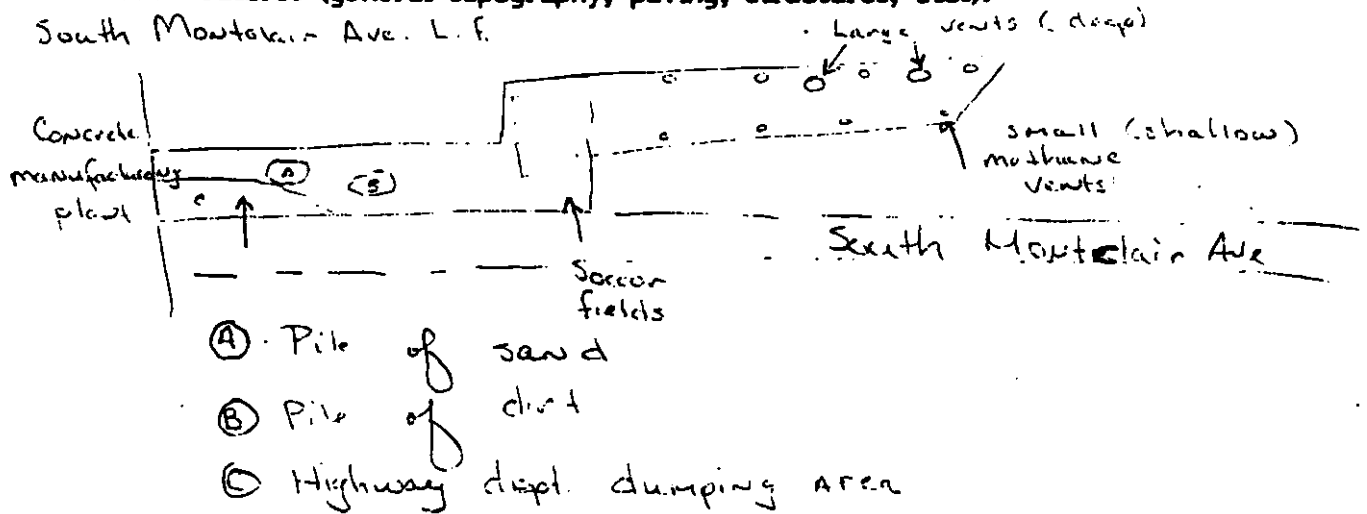 (general topography, paving, structures, etc.):
South Montclair Ave. L.F.
Large vents (deep)
Concrete
manufacturing
plant
A
B
C
small (shallow)
methane
vents
South Montclair Ave
Soccor
fields
A Pile of sand
B Pile of dirt
C Highway dept. dumping Area